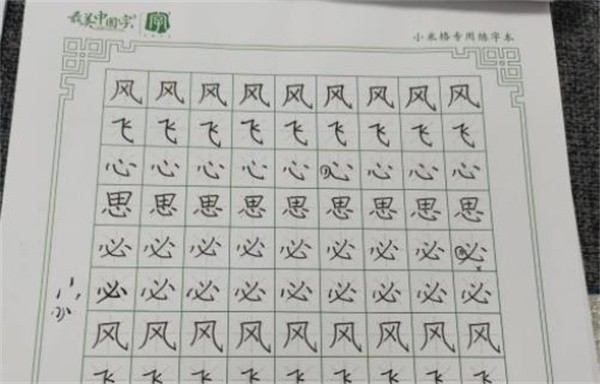 最美中国字
小米格专用练字本
风风风风风风风风风
飞飞飞飞飞飞飞飞飞
心心心心心心心心心
思思思思思思思思思
必必必必必必必必必
必必必必必必必必必
风风风风风风风风风
飞飞飞飞飞飞飞飞飞